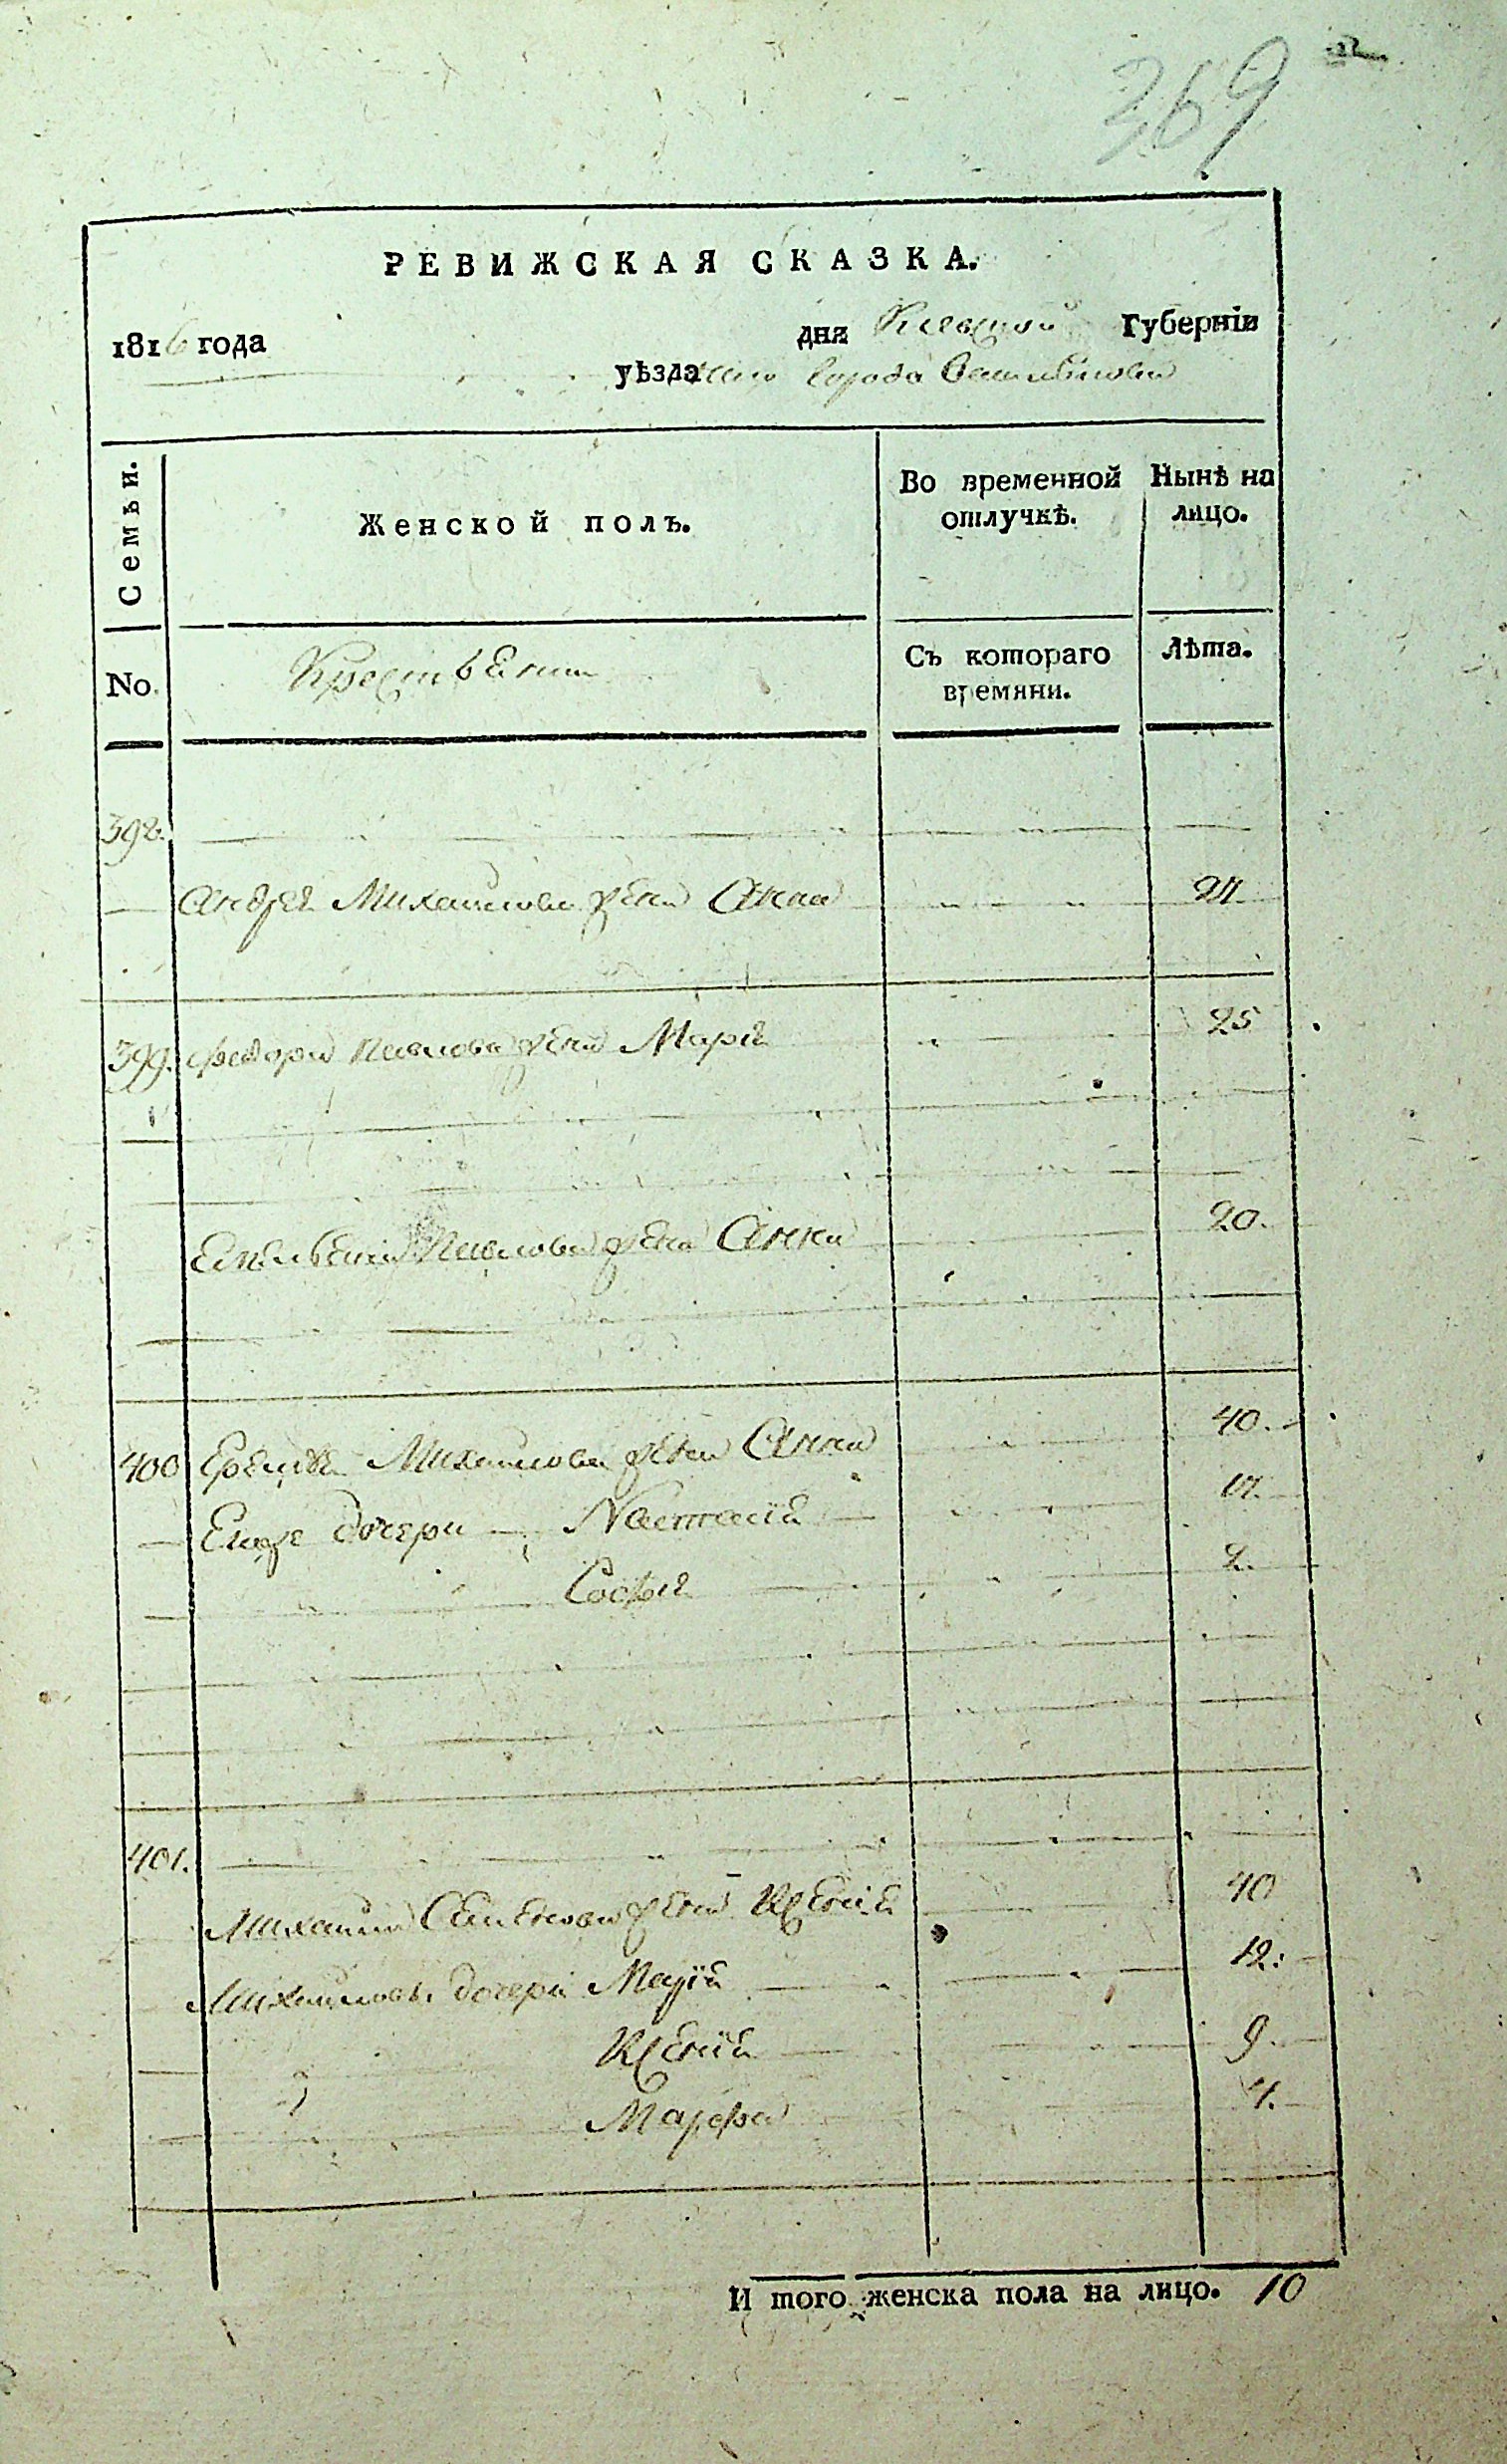 369
РЕВИЖСКАЯ СКАЗКА.
1816 года дня Киевской Губерніи
уѣзда города
Семьи.
Женской полъ.
Во временной отлучкѣ.
Нынѣ на лицо.
No.
Крестьяни
Съ котораго времяни.
Лѣта.
398.
Андрея Михаилова жена Анна 24
399. Федора Павлова жена Марія 25
Емельяна Павлова жена Анна 20.
400 Михаилова жена Анна 40.
Егоже дочери Настасія
Софья 2.
401.
Михаила Семенова жена Ксенія 40
Михаиловы дочери Марія 12.
Ксенія 9.
Марфа 4.
И того женска пола на лицо. 10